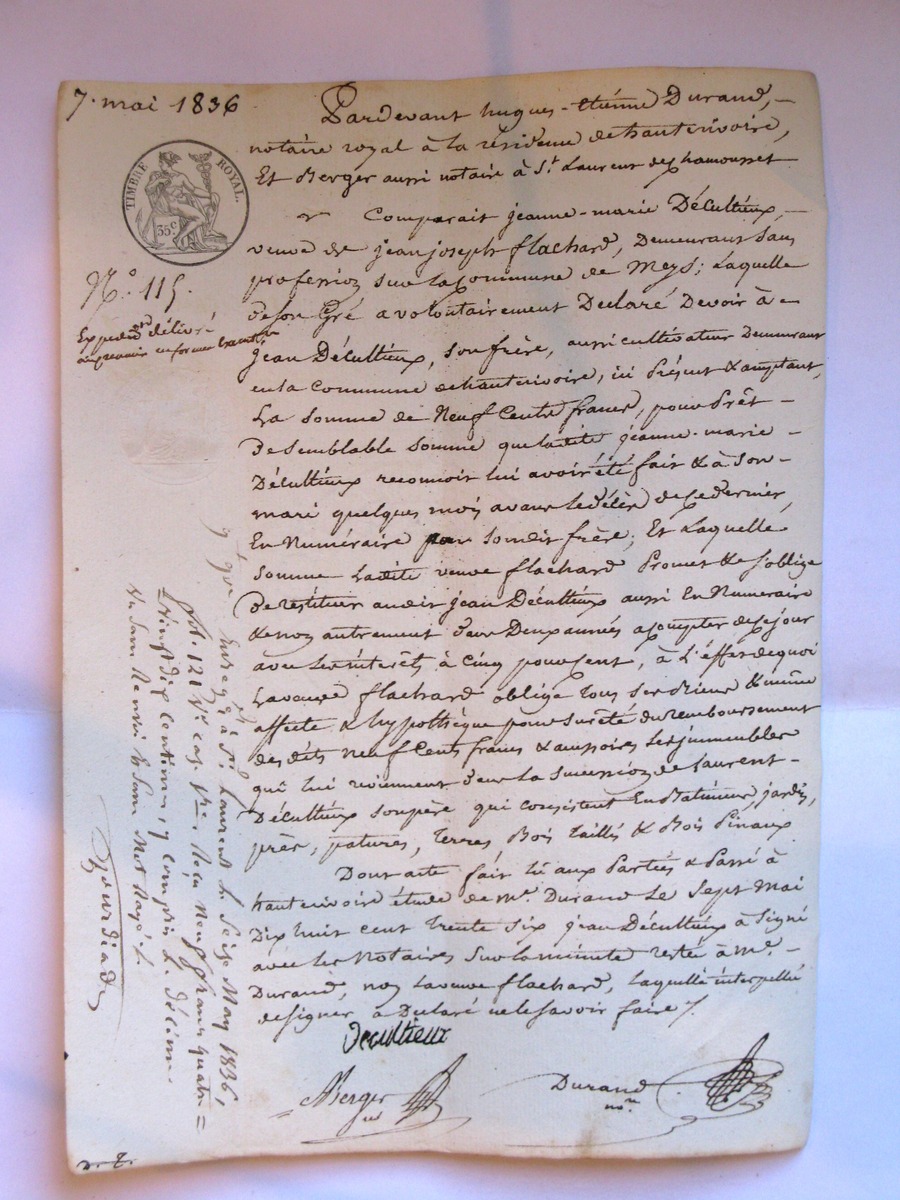 7. mai 1836
Pardevant hugues-etiénne Durand,
notaire royal à la résidence de hauterivoire,
Et Berger aussi notaire à St. Laurent de chamousset
Comparait jeanne-marie Décultieux,
veuve de jean joseph flachard, Demeurant sans
profession sur la Commune de Meys; Laquelle
de son Gré a volontairement Déclaré Devoir à
jean Décultieux, son frère, aussi cultivateur Demeurant
en la Commune de hauterivoire, ici Présent & acceptant,
La somme de Neuf Cents francs, pour Prêt
De semblable somme que ladite jeanne-marie
Décultieux reconnoit lui avoir été fait & à son
mari quelques mois avant le décès de ce dernier,
En Numéraire par son dit frère; Et Laquelle
somme Ladite veuve flachard Promet & s'oblige
De restituer audit jean Décultieux aussi En Numéraire
& non autrement dans Deux années à compter de ce jour
avec les intérêts à Cinq pour cent, à L'effet de quoi
La veuve flachard oblige tous ses biens & même
affecte & hypothèque pour sureté du remboursement
des dits neuf Cents francs & accessoires les immeubles
qui lui reviennent dans la succession de Laurent
Décultieux son père qui consistent En Batiment, jardin,
près, patures, Terres, Bois taillis & Bois Pinaux
Dont acte fait lu aux Parties & Passé à
hauterivoire étude de Me. Durand Le Sept Mai
Dix huit cent trente six jean Décultieux à Signé
avec les Notaires Sur la minute restée à Me.
Durand, non La veuve flachard, Laquelle interpellée
de signer à Déclaré ne le savoir faire /.
Decultieux
Berger
Durand
nore
TIMBRE ROYAL.
35 c.
No. 115.
Expedon délivré
au premier en forme
Enregé à St. Laurent le Seize May 1836,
fol. 121 Vo. cas. Reçu Neuf francs quatre=
Vingt dix centimes y compris le décime